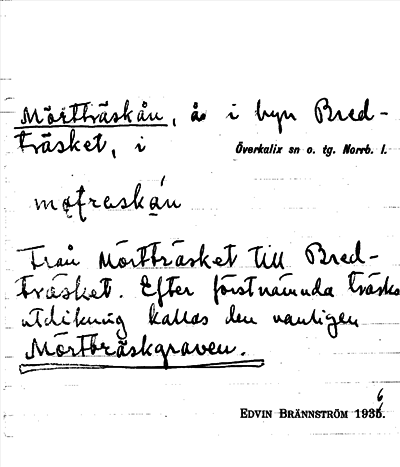 Mörtträskån, å i byn Bred-
träsket, i Överkalix sn o. tg. Norrb. l.
Från Mörtträsket till Bred-
träsket. Efter förstnämnda träsks
utdikning kallas den vanligen
Mörtträskgraven.
EDVIN BRÄNNSTRÖM 1936.